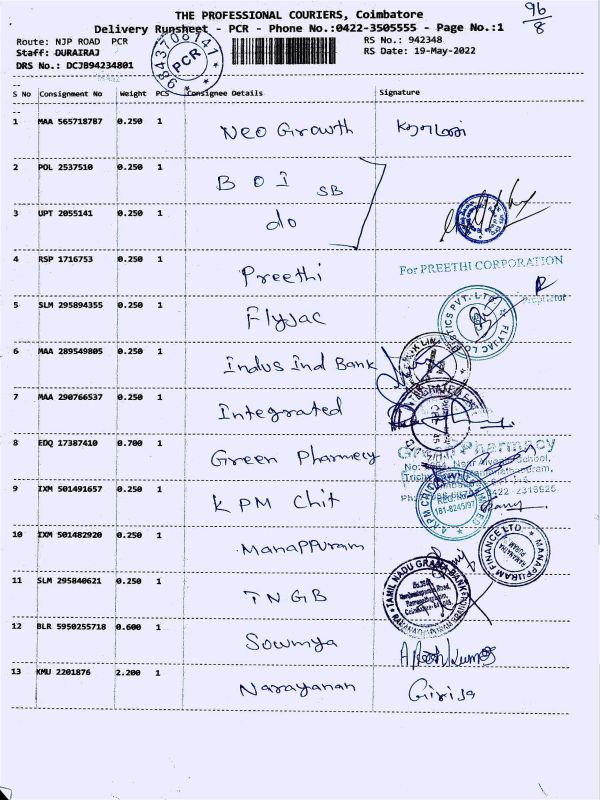 THE PROFESSIONAL COURIERS, Coimbatore
96
8
Delivery Runsheet - PCR - Phone No.:0422-3505555 - Page No.:1
Route: NJP ROAD PCR
RS No.: 942348
Staff: DURAIRAJ
RS Date: 19-May-2022
DRS No.: DCJB94234801
9843708141
PCR
S No Consignment No Weight PCS Consignee Details Signature
1 MAA 565718787 0.250 1 Neo Growth
2 POL 2537510 0.250 1 B O I SB
3 UPT 2055141 0.250 1 do
4 RSP 1716753 0.250 1 Preethi
For PREETHI CORPORATION
Proprietor
5 SLM 295894355 0.250 1 Flyjac
6 MAA 289549805 0.250 1 Indus Ind Bank
7 MAA 290766537 0.250 1 Integrated
8 EDQ 17387410 0.700 1 Green Pharmecy
Green Pharmacy
9 IXM 501491657 0.250 1 KPM Chit
181-8245/97
10 IXM 501482920 0.250 1 Manappuram
MANAPPURAM FINANCE LTD
11 SLM 295840621 0.250 1 TNGB
TAMIL NADU GRAMA BANK
12 BLR 5950255718 0.600 1 Sowmya
13 KMU 2201876 2.200 1 Narayanan Girija